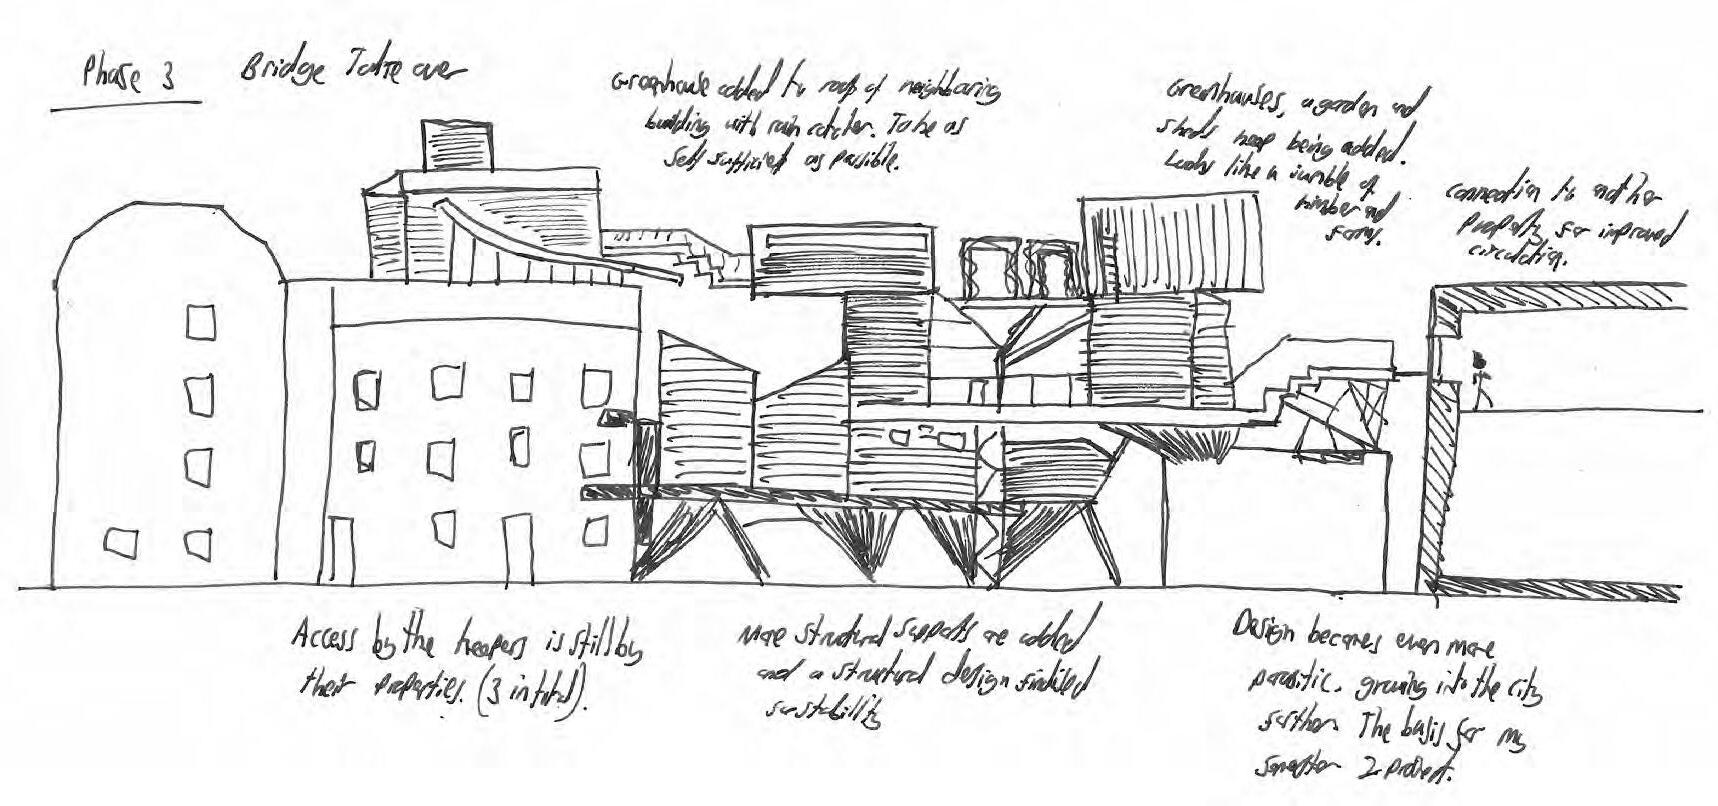 Phase 3
Bridge Take over
Greenhouse added to roof of neighbouring
building with rain catcher. To be as
self sufficient as possible.
Greenhouses, a garden and
sheds keep being added.
Looks like a jumble of
timber and
forms.
connection to another
property for improved
circulation.
Access by the keepers is still by
their properties. (3 in total).
More structural supports are added
and a structural design finalised
for stability
Design becomes even more
parasitic, growing into the city
further. The basis for my
semester 2 project.